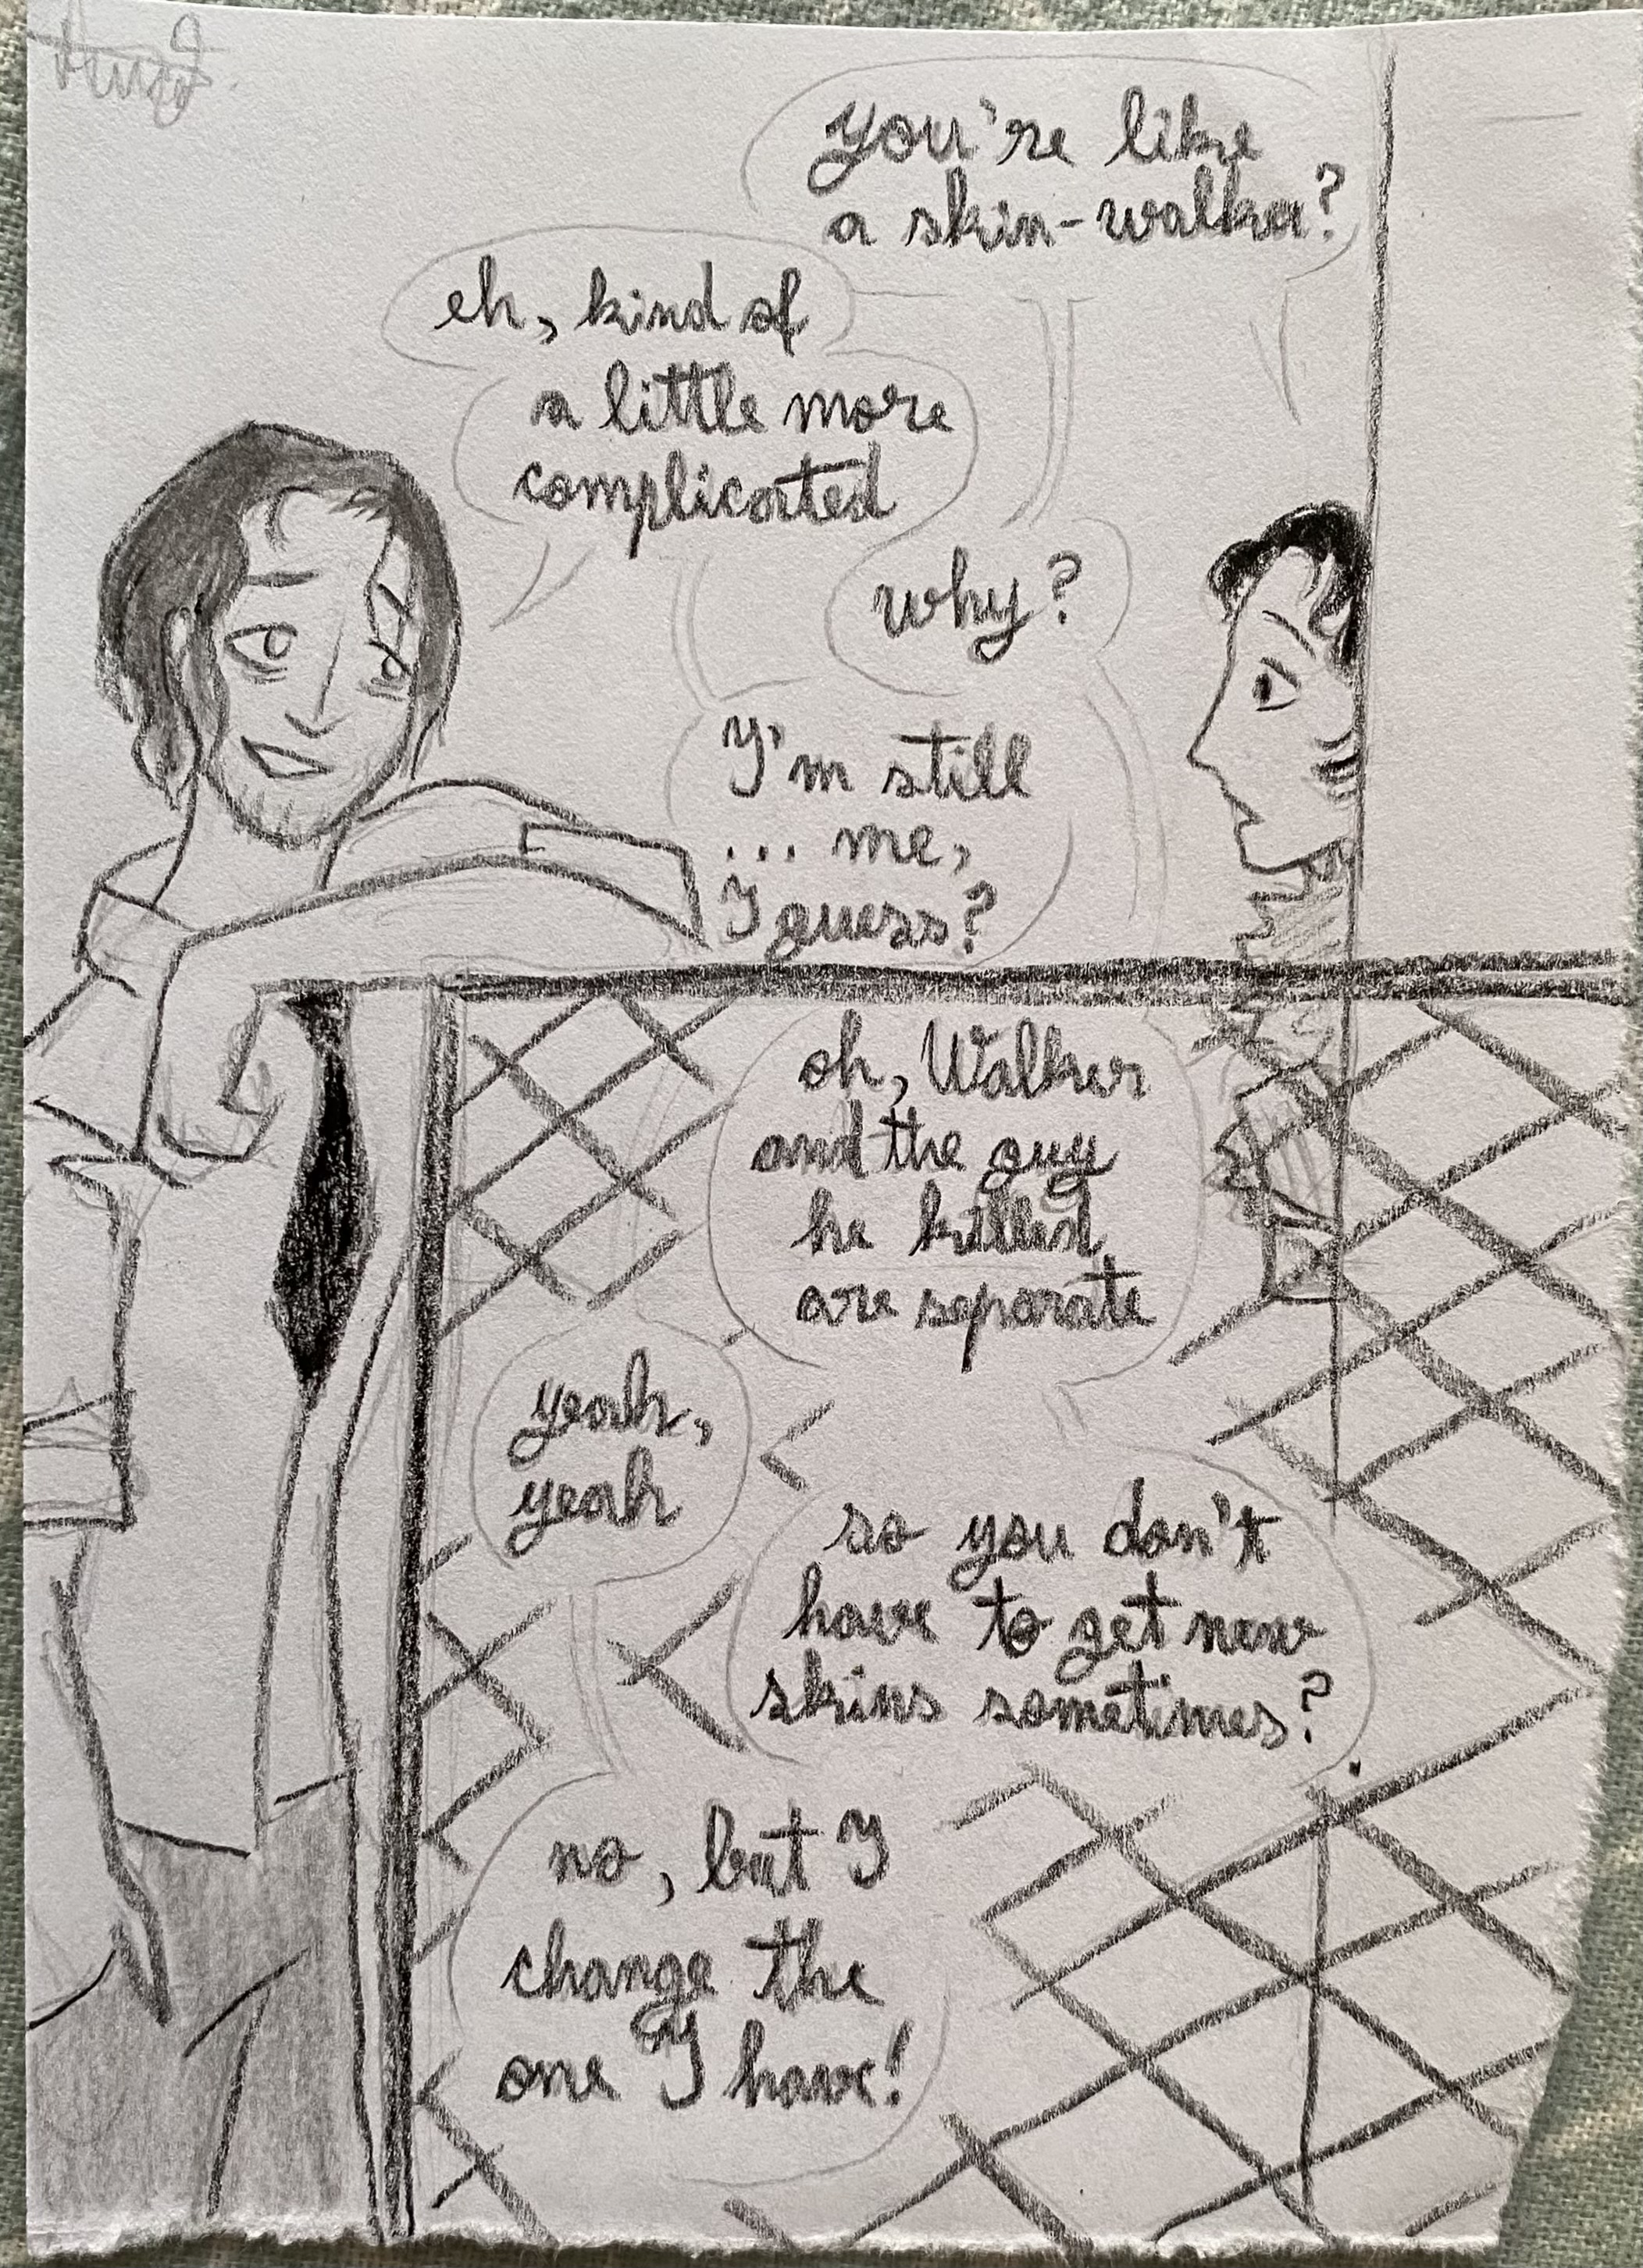 you're like
a skin-walker?
eh, kind of
a little more
complicated
why?
I'm still
... me,
I guess?
oh, Walker
and the guy
he killed
are separate
yeah,
yeah
so you don't
have to get new
skins sometimes?
no, but I
change the
one I have!